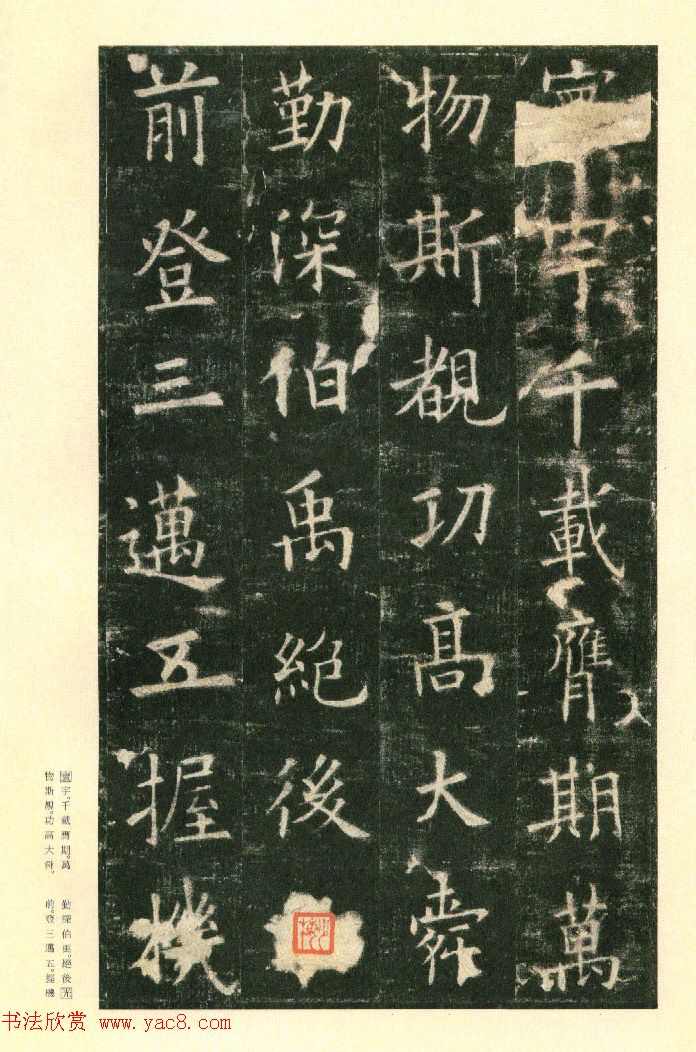 寰宇千載膺期萬
物斯覩功高大舜
勤深伯禹絕後
前登三邁五握機
寰宇。千載膺期。萬
物斯覩。功高大舜。
勤深伯禹。絕後光
前。登三邁五。握機
书法欣赏 www.yac8.com